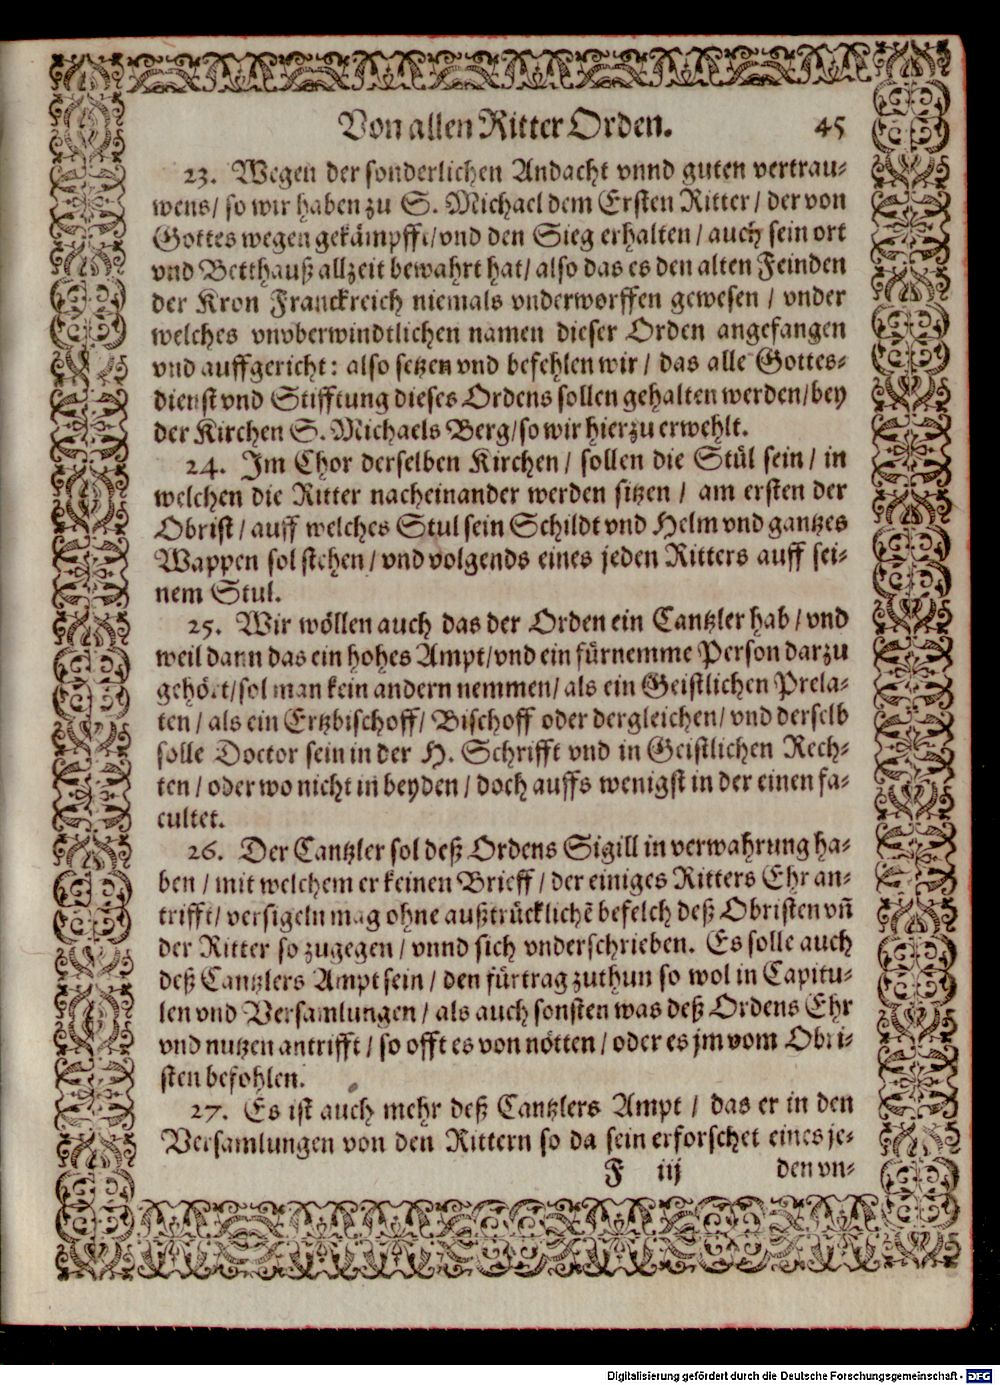 Von allen Ritter Orden. 45
23. Wegen der sonderlichen Andacht vnnd guten vertrau-
wens/ so wir haben zu S. Michael dem Ersten Ritter/ der von
Gottes wegen gekämpfft/ vnd den Sieg erhalten/ auch sein ort
vnd Betthauß allzeit bewahrt hat/ also das es den alten Feinden
der Kron Franckreich niemals vnderworffen gewesen / vnder
welches vnvberwindtlichen namen dieser Orden angefangen
vnd auffgericht: also setzen vnd befehlen wir / das alle Gottes-
dienst vnd Stifftung dieses Ordens sollen gehalten werden/ bey
der Kirchen S. Michaels Berg/ so wir hierzu erwehlt.
24. Im Chor derselben Kirchen / sollen die Stül sein / in
welchen die Ritter nacheinander werden sitzen / am ersten der
Obrist / auff welches Stul sein Schildt vnd Helm vnd gantzes
Wappen sol stehen / vnd volgends eines jeden Ritters auff sei-
nem Stul.
25. Wir wöllen auch das der Orden ein Cantzler hab / vnd
weil dann das ein hohes Ampt/ vnd ein fürnemme Person darzu
gehört/ sol man kein andern nemmen/ als ein Geistlichen Prela-
ten / als ein Ertzbischoff/ Bischoff oder dergleichen/ vnd derselb
solle Doctor sein in der H. Schrifft vnd in Geistlichen Rech-
ten / oder wo nicht in beyden / doch auffs wenigst in der einen fa-
cultet.
26. Der Cantzler sol deß Ordens Sigill in verwahrung ha-
ben / mit welchem er keinen Brieff / der einiges Ritters Ehr an-
trifft/ versigeln mag ohne außtrücklichē befelch deß Obristen vñ
der Ritter so zugegen / vnnd sich vnderschrieben. Es solle auch
deß Cantzlers Ampt sein / den fürtrag zuthun so wol in Capitu-
len vnd Versamlungen / als auch sonsten was deß Ordens Ehr
vnd nutzen antrifft / so offt es von nötten / oder es jm vom Obri-
sten befohlen.
27. Es ist auch mehr deß Cantzlers Ampt / das er in den
Versamlungen von den Rittern so da sein erforschet eines je-
F iij den vn-
Digitalisierung gefördert durch die Deutsche Forschungsgemeinschaft - DFG